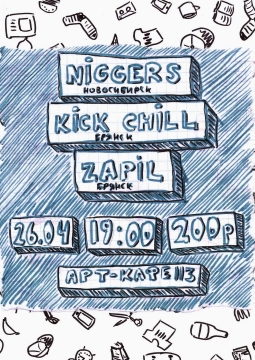 NIGGERS
НОВОСИБИРСК
KICK CHILL
БРЯНСК
ZAPIL
БРЯНСК
26.04 19:00 200р
АРТ-КАФЕ 113